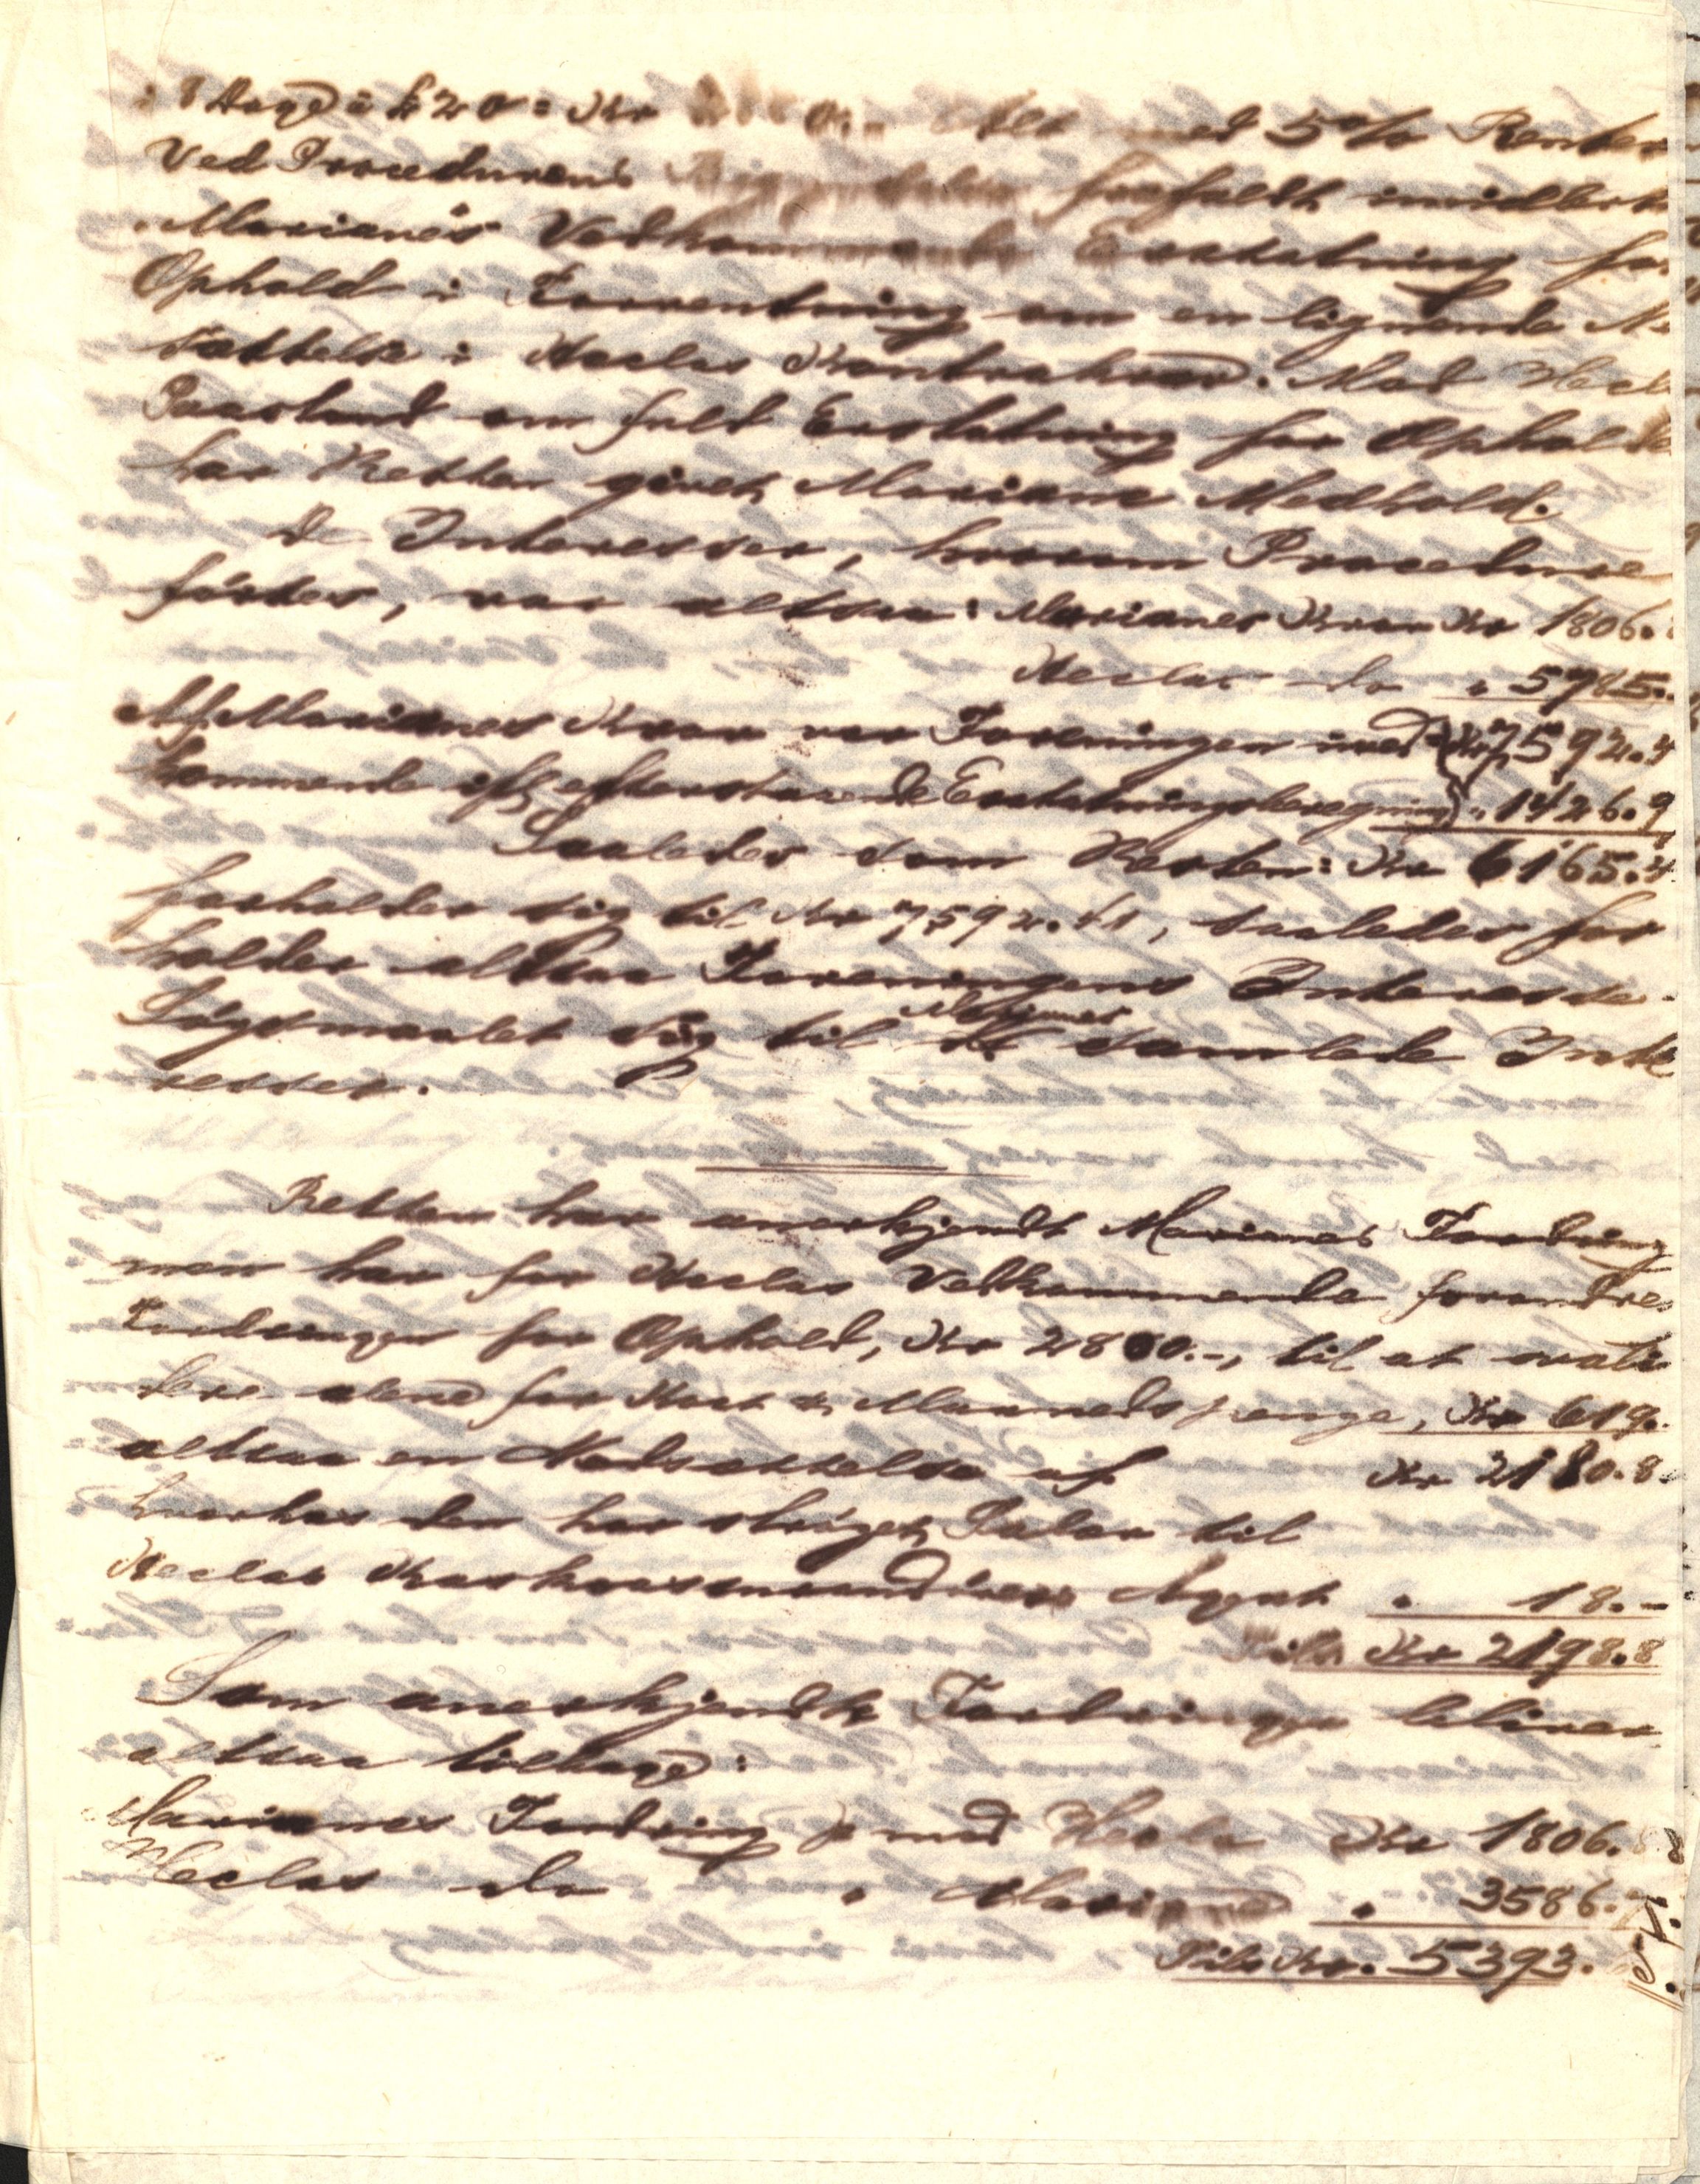 8 Dage à k 20 = Kr Alt med 5% Renter
Ved Procedurens frafaldt imidlert
Marianes Vedkommende Erstatning for
Ophold i Forventning om en lignende Ne
sættelse i Heclas Kontrakrav. Mod Hecl
Paastand om fuld Erstatning for Ophold
har Retten givet Mariane Medhold.
De Interesser, hvorom Procedure
førtes, var altsaa: Marianes Krav Kr 1806.
Heclas do " 5785.
Af Marianes Krav var Foreningen ived Kr 7592.4
kommende iflg efterstaaende Erstatningsberegning " 1426.9
Saaledes som Resten: Kr 6165.4
forholder sig til Kr 7592.41, saaledes for
holder altsaa Foreningens Interesse
Søgsmaalet sig til Marianes samlede Inte
resser.
Retten har anerkjendt Marianes Fordring
men har for Heclas Vedkommende forandre
Fordringen for Ophold, Kr 2800.-, til at
dere alene for Kost & Maanedspenge, Kr 619.
altsaa en Nedsættelse af Kr 2180.8
hvorhos den har strøget Salær til
Heclas Agent " 18.-
Tils. Kr 2198.8
Som anerkjendte Fordringer bliver
altsaa tilbage:
Marianes Fordring mod Hecla Kr 1806.
Heclas do " Mariane " 3586.
Tils Kr. 5393.